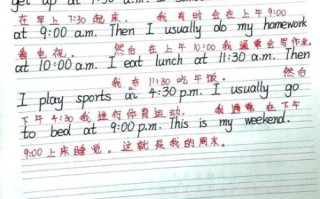 get up at 7:30 a.m.
在早上7:30起床. 我有时会在上午9:00
at 9:00 a.m. Then I usually do my homework
看电视. 然后在上午10:00我通常会写作业.
at 10:00 a.m. I eat lunch at 11:30 a.m. Then
我在11:30吃午饭. 然后
I play sports at 4:30 p.m. I usually go
下午4:30我进行体育运动. 我通常在下午
to bed at 9:00 p.m. This is my weekend.
9:00上床睡觉. 这就是我的周末.